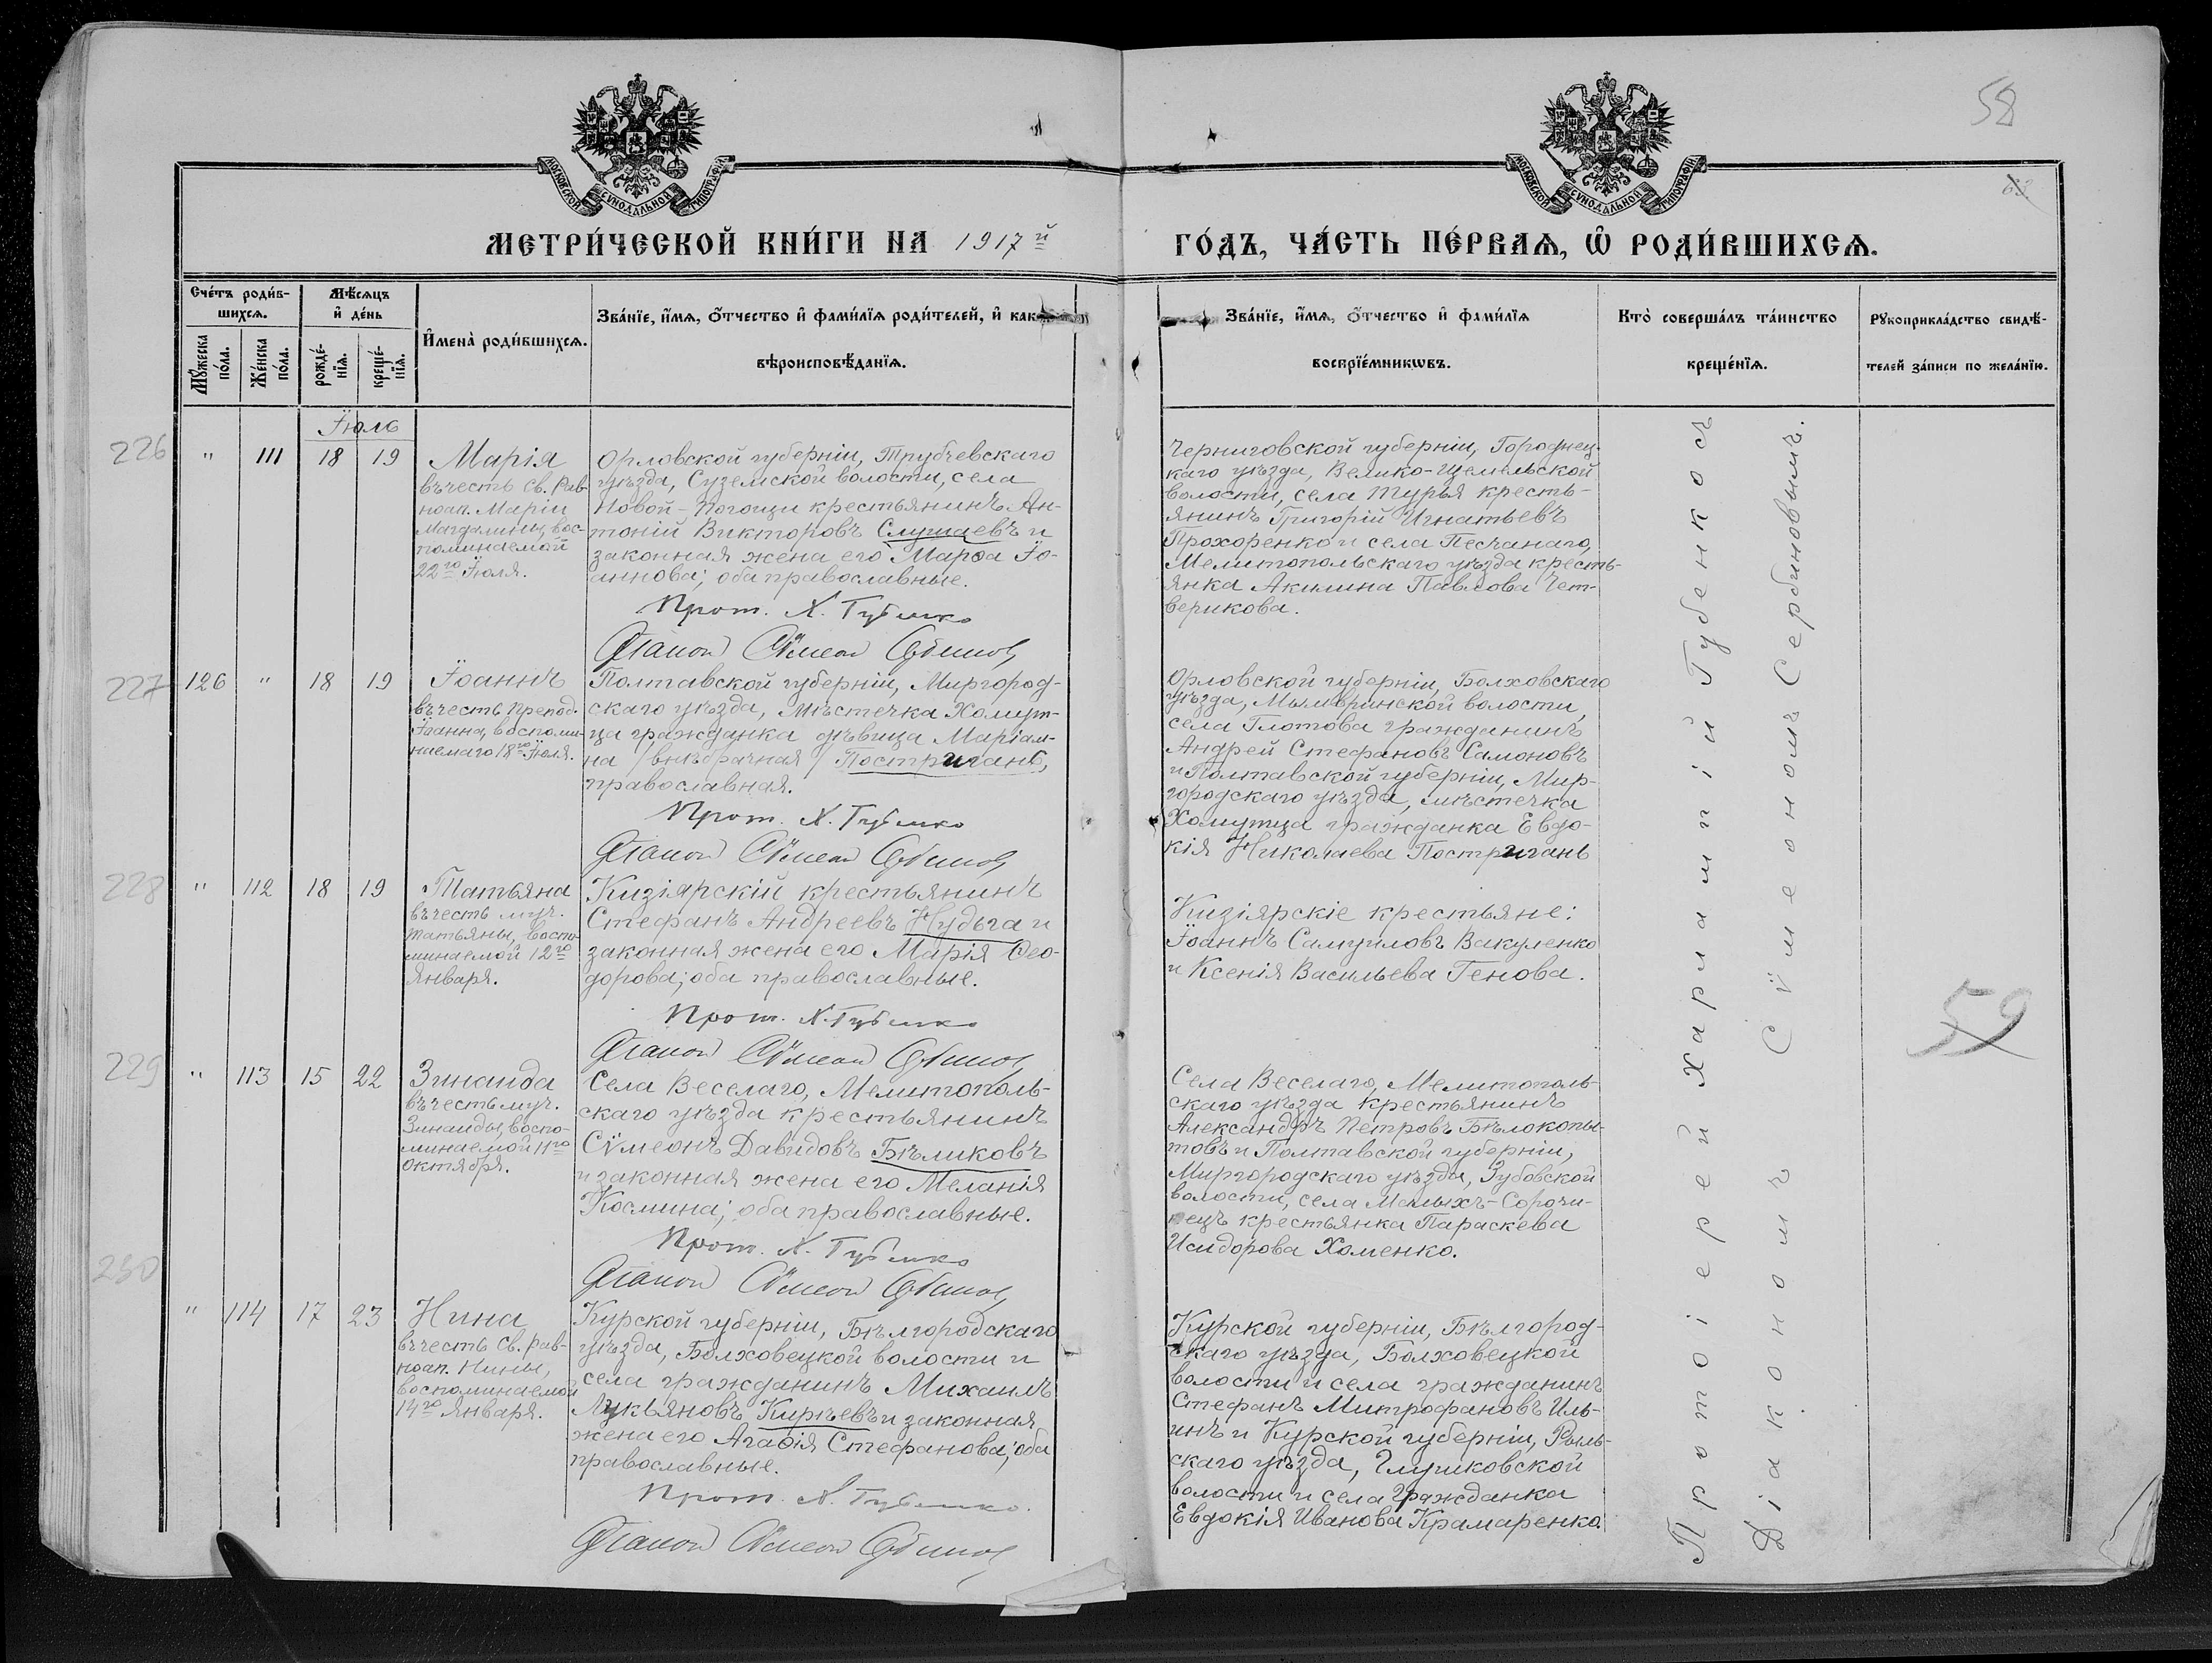 58
63
МОСКОВСКОЙ СѴНОДАЛЬНОЙ ТИПОГРАФІИ
МОСКОВСКОЙ СѴНОДАЛЬНОЙ ТИПОГРАФІИ
МЕТРИ́ЧЕСКОЙ КНИ́ГИ НА 1917й
ГО́ДЪ, ЧА́СТЬ ПЕ́РВАѦ, Ѡ РОДИ́ВШИХСѦ.
Сче́тъ роди́в-
шихсѧ.
Мꙋ́жеска по́ла.
Же́нска по́ла.
Мѣ́сѧцъ
и҆ де́нь
рожде́-
нїѧ.
креще́-
нїѧ.
И҆мена̀ роди́вшихсѧ.
Зва́нїе, и҆́мѧ, ѻ҆́тчество и҆ фами́лїѧ роди́телей, и҆ как
вѣроисповѣ́данїѧ.
Зва́нїе, и҆́мѧ, ѻ҆́тчество и҆ фами́лїѧ
воспрїе́мникѡвъ.
Кто̀ соверша́лъ та́инство
креще́нїѧ.
Рꙋкоприкла́дство свидѣ́-
телей за́писи по жела́нїю.
Іюль
226
" 111 18 19
Марія
въ честь св. Рав-
ноап. Маріи
Магдалины, вос-
поминаемой
22го Іюля.
Орловской губерніи, Трубчевскаго
уѣзда, Суземской волости, села
Новой-Погощи крестьянинъ Ан-
тоній Викторовъ Слушаевъ и
законная жена его Марѳа Іо-
аннова; оба православные.
Прот. Х. Губенко
Діаконъ Сѵмеонъ Сербиновъ
Черниговской губерніи, Городнец-
каго уѣзда, Велико-Щемельской
волости, села Турья кресть-
янинъ Григорій Игнатьевъ
Прохоренко и села Песчанаго,
Мелитопольскаго уѣзда кресть-
янка Акилина Павлова Чет-
верикова.
227
126 " 18 19
Іоаннъ
въ честь препод.
Іоанна, воспоми-
наемаго 18го Іюля.
Полтавской губерніи, Миргород-
скаго уѣзда, мѣстечка Хомут-
ца гражданка дѣвица Маріам-
на /внѣбрачная/ Постригань,
православная.
Прот. Х. Губенко
Діаконъ Сѵмеонъ Сербиновъ
Орловской губерніи, Болховскаго
уѣзда, волости,
села Глотова гражданинъ
Андрей Стефановъ Самоновъ
и Полтавской губерніи, Мир-
городскаго уѣзда, мѣстечка
Хомутца гражданка Евдо-
кія Николаева Постригань
228
" 112 18 19
Татьяна
въ честь муч.
Татьяны, воспо-
минаемой 12го
Января.
Кизіярскій крестьянинъ
Стефанъ Андреевъ Нудьга и
законная жена его Марія Ѳео-
дорова; оба православные.
Прот. Х. Губенко
Діаконъ Сѵмеонъ Сербиновъ
Кизіярскіе крестьяне:
Іоаннъ Самуиловъ Вакуленко
и Ксенія Васильева Генова.
229
" 113 15 22
Зинаида
въ честь муч.
Зинаиды, воспо-
минаемой 11го
Октября.
Села Веселаго, Мелитополь-
скаго уѣзда крестьянинъ
Сѵмеонъ Давидовъ Бѣликовъ
и законная жена его Меланія
Космина; оба православные.
Прот. Х. Губенко
Діаконъ Сѵмеонъ Сербиновъ
Села Веселаго, Мелитополь-
скаго уѣзда крестьянинъ
Александръ Петровъ Бѣлокопы-
товъ и Полтавской губерніи,
Миргородскаго уѣзда, Зубовской
волости, села Малыхъ-Сорочи-
нецъ крестьянка Параскева
Исидорова Хоменко.
230
" 114 17 23
Нина
въ честь св. рав-
ноап. Нины,
воспоминаемой
14го Января.
Курской губерніи, Бѣлгородскаго
уѣзда, Болховецкой волости и
села гражданинъ Михаилъ
Лукьяновъ Кирѣевъ и законная
жена его Агаѳія Стефанова; оба
православные.
Прот. Х. Губенко.
Діаконъ Сѵмеонъ Сербиновъ
Курской губерніи, Бѣлгород-
скаго уѣзда, Болховецкой
волости и села гражданинъ
Стефанъ Митрофановъ Иль-
инъ и Курской губерніи, Рыль-
скаго уѣзда, Глушковской
волости и села гражданка
Евдокія Иванова Крамаренко.
Протоіерей Харлампій Губенко съ
Діакономъ Сѵмеономъ Сербиновымъ.
59